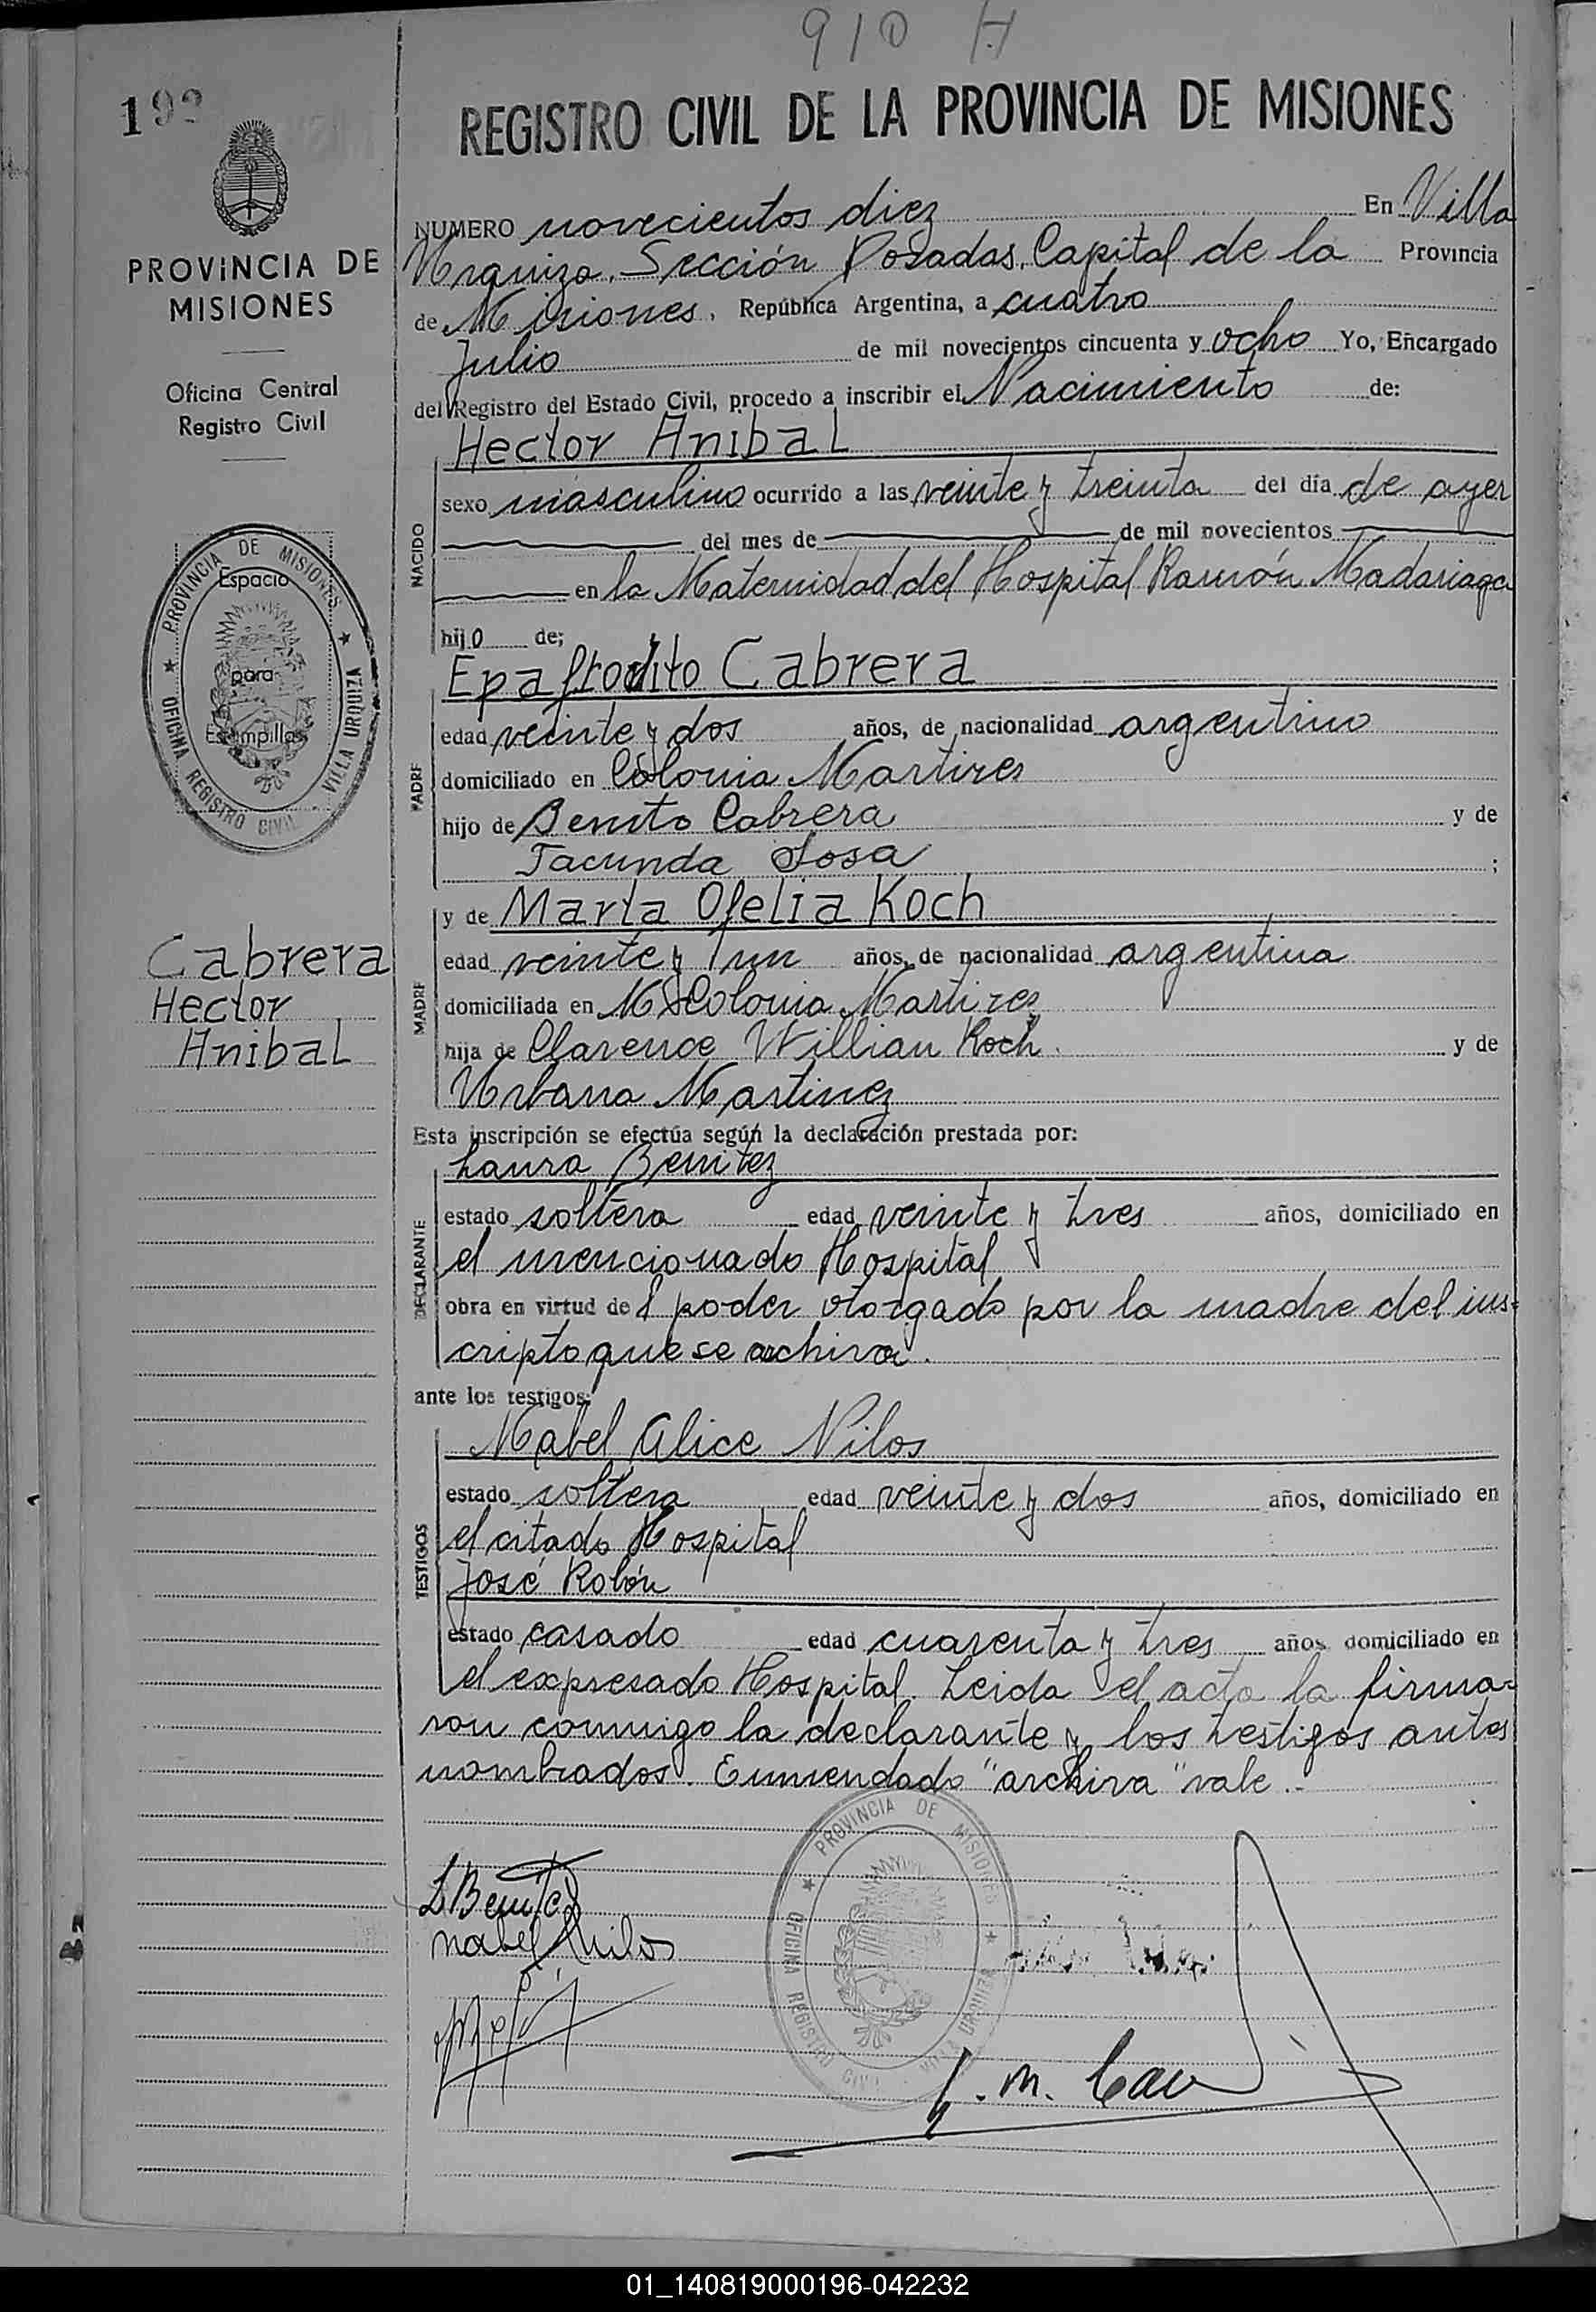 910 H
192
REGISTRO CIVIL DE LA PROVINCIA DE MISIONES
PROVINCIA DE
MISIONES
Oficina Central
Registro Civil
PROVINCIA DE MISIONES
OFICINA REGISTRO CIVIL VILLA URQUIZA
Espacio
para
Estampillas
Cabrera
Hector
Anibal
NUMERO novecientos diez En Villa
Urquiza, Sección Posadas, Capital de la Provincia
de Misiones, República Argentina, a cuatro
Julio de mil novecientos cincuenta y ocho Yo, Encargado
del Registro del Estado Civil, procedo a inscribir el Nacimiento de:
Hector Anibal
NACIDO
sexo masculino ocurrido a las veinte y treinta del día de ayer
del mes de de mil novecientos
en la Maternidad del Hospital Ramón Madariaga
hijo de;
Epafrodito Cabrera
PADRE
edad veinte y dos años, de nacionalidad argentino
domiciliado en Colonia Martires
hijo de Benito Cabrera y de
Facunda Sosa ;
y de Marta Ofelia Koch
MADRE
edad veinte y un años, de nacionalidad argentina
domiciliada en Colonia Martires
hija de Clarence Willian Koch y de
Urbana Martinez
Esta inscripción se efectúa según la declaración prestada por:
Laura Benitez
DECLARANTE
estado soltera edad veinte y tres años, domiciliado en
el mencionado Hospital
obra en virtud del poder otorgado por la madre del ins-
cripto que se archiva.
ante los testigos:
Mabel Alice Nilos
TESTIGOS
estado soltera edad veinte y dos años, domiciliado en
el citado Hospital
José Rolón
estado casado edad cuarenta y tres años domiciliado en
el expresado Hospital. Leida el acta la firma-
ron conmigo la declarante y los testigos antes
nombrados. Enmendado "archiva" vale.-
PROVINCIA DE MISIONES
OFICINA REGISTRO CIVIL VILLA URQUIZA
L Benitez
Mabel A Nilos
01_140819000196-042232